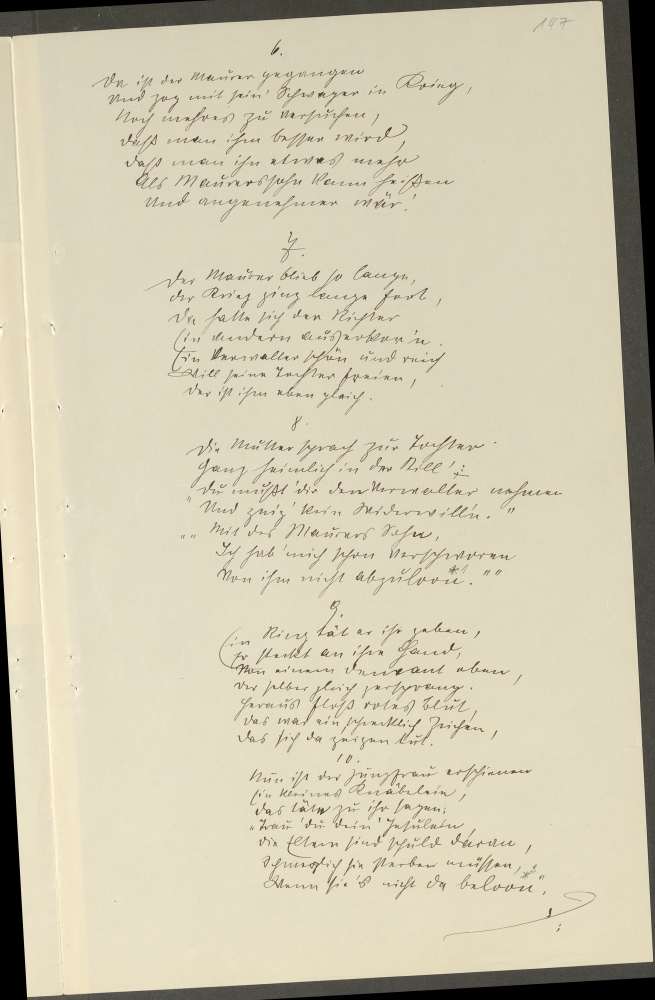 147
6.
Da ist der Maurer gegangen
Und zog mit sein' Schwager in Krieg,
Noch mehres zu versuchen,
daß man ihm besser wird,
daß man ihn etwas mehr
Als Maurerssohn kann heißen
Und angenehmer wär'.
7.
Der Maurer blieb so lange,
der Krieg ging lange fort,
Da hatte sich der Richter
Ein andern auserkor'n.
Ein Verwalter schön und reich
Will seine Tochter freien,
der ist ihm eben gleich.
8.
Die Mutter sprach zur Tochter
Ganz heimlich in der Still':
"Du mußt' dir den Verwalter nehmen
Und zeig' kein Widerwill'n."
""Mit des Maurers Sohn,
Ich hab' mich schon verschworen
Von ihm nicht abzuloon*.""
9.
Ein Ring tät er ihr geben,
Er steckt an ihre Hand,
Von einem Demant oben,
der selber gleich zersprang.
Heraus floß rotes Blut,
das war ein schrecklich Zeichen,
das sich da zeigen tut.
10.
Nun ist der Jungfrau erschienen
Ein kleines Knäbelein,
das täte zu ihr sagen:
"Trau' du dein' Jesulein
die Eltern sind schuld daran,
Schmerzlich sie sterben müssen,
Wenn sie's nicht da beloon*".